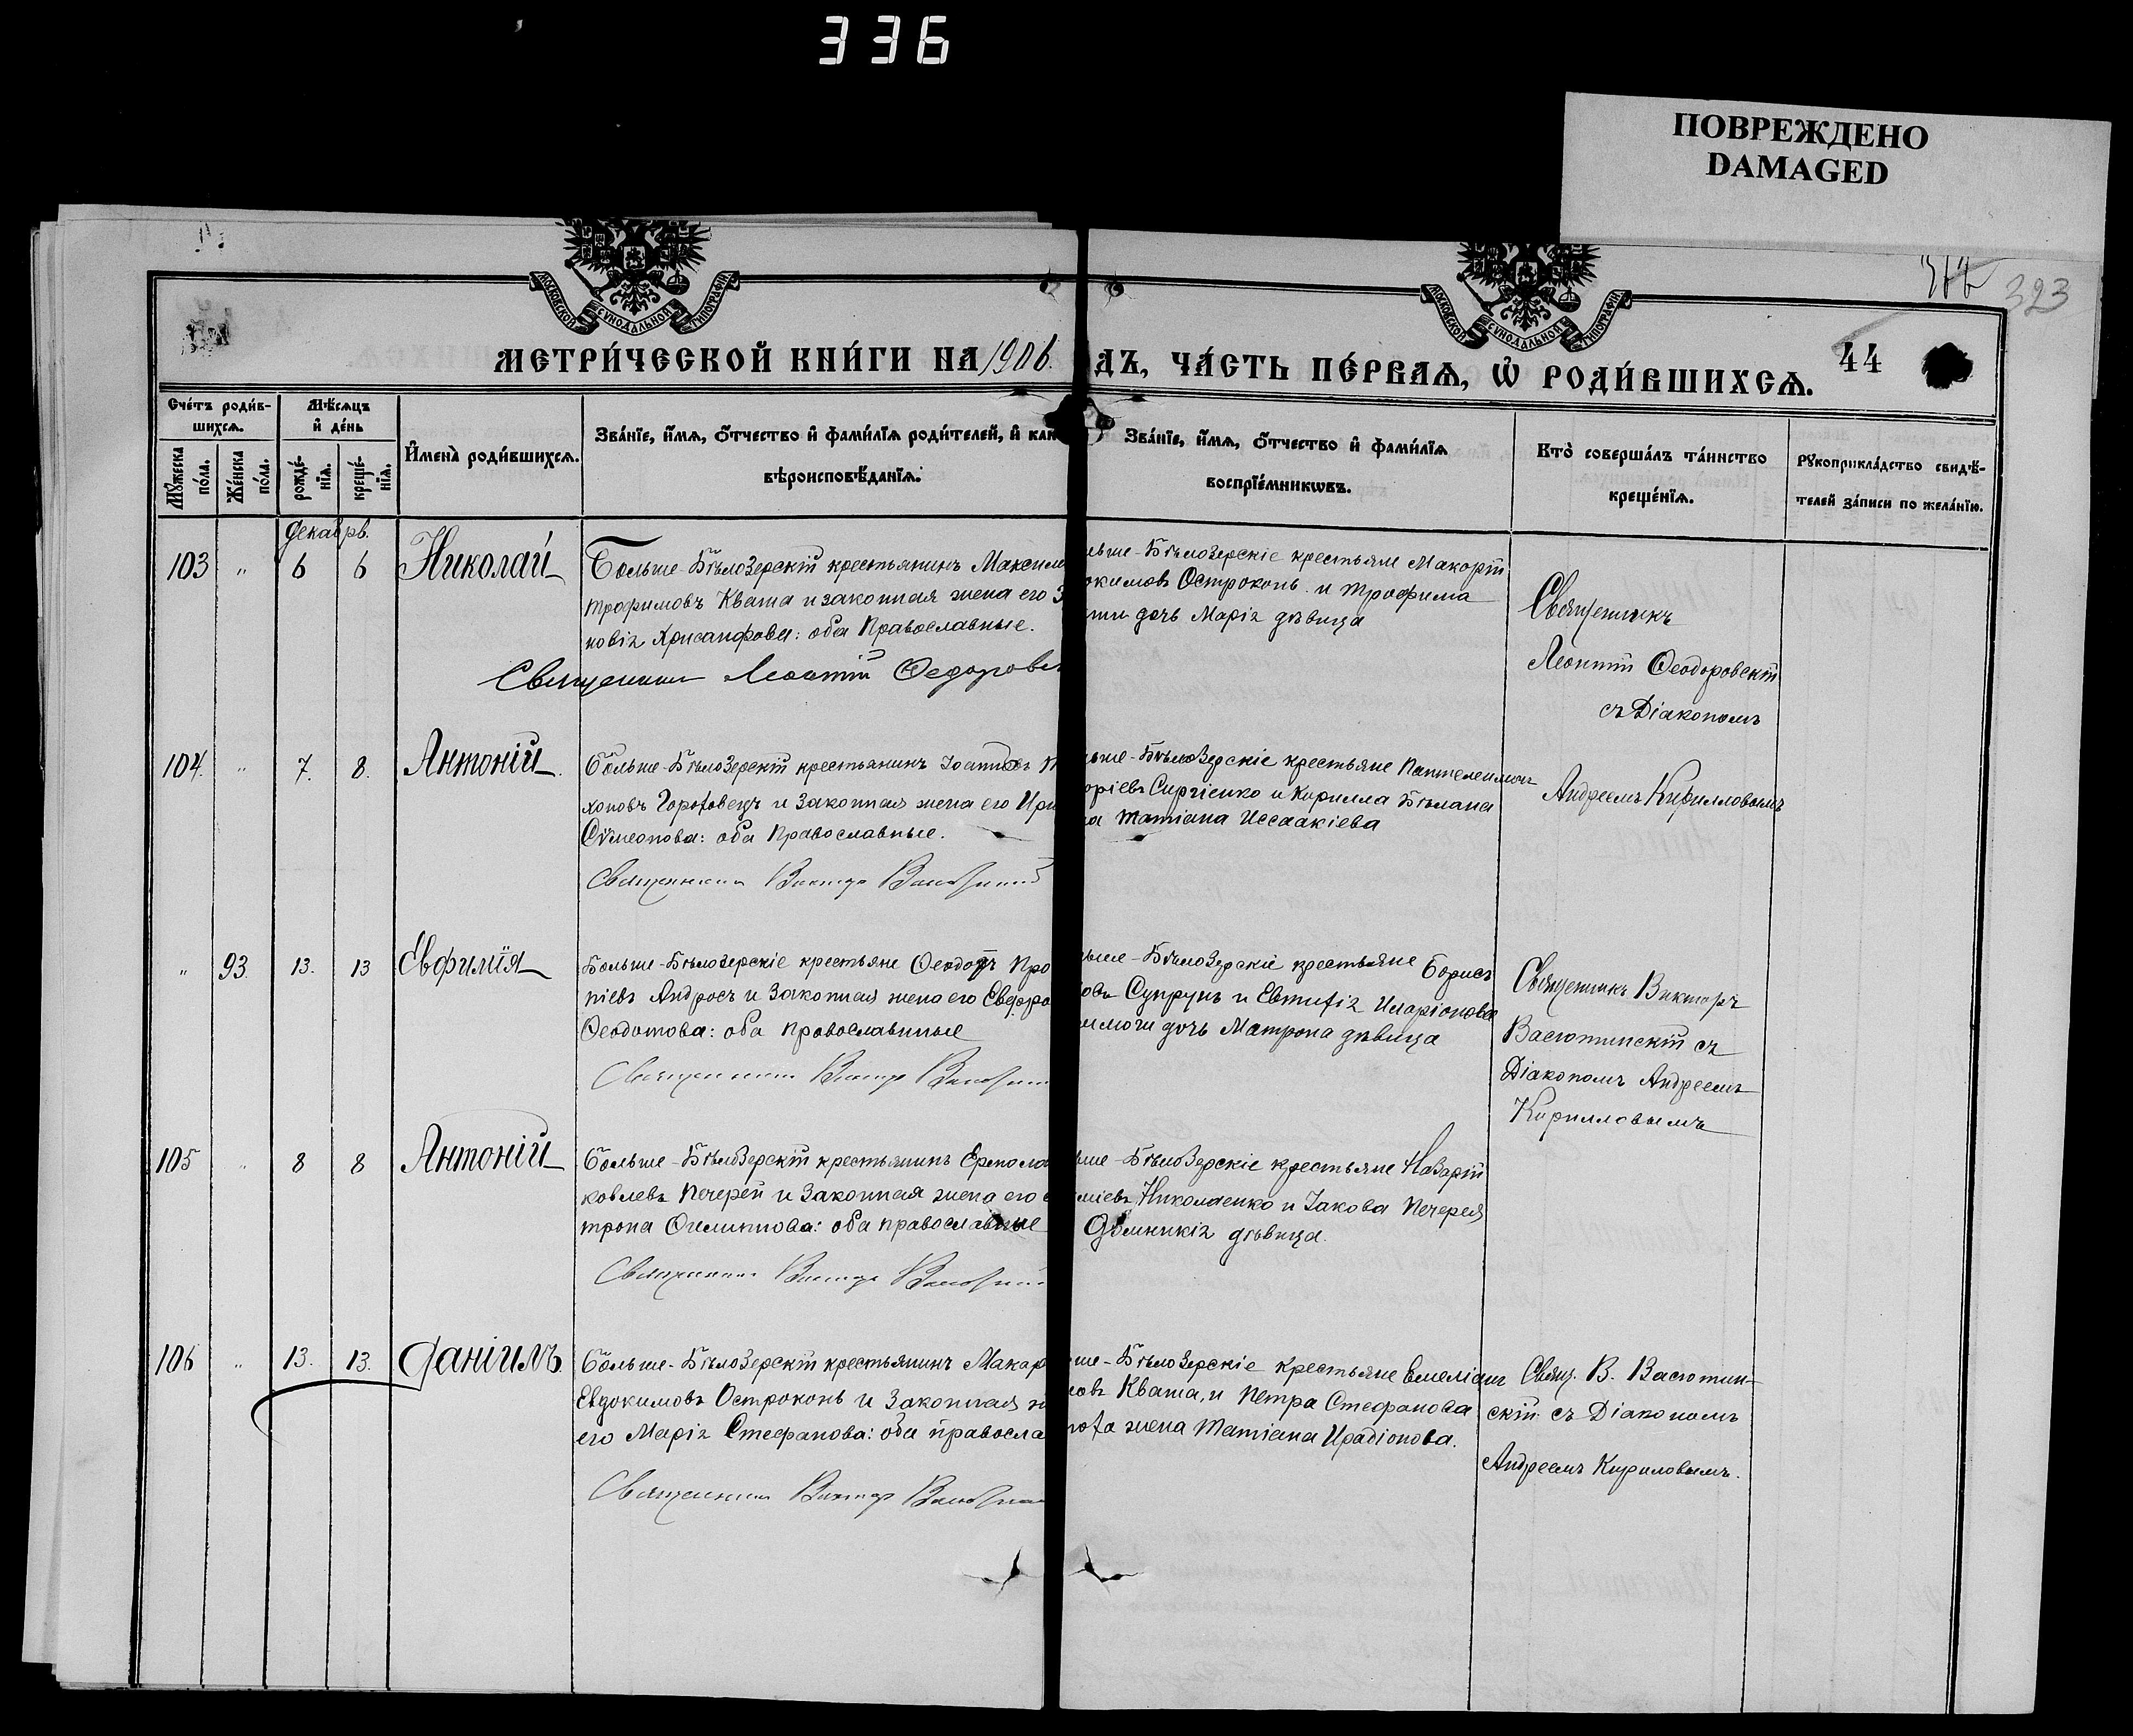 336
ПОВРЕЖДЕНО
DAMAGED
323
МОСКОВСКОЙ СѴНОДАЛЬНОЙ ТИПОГРАФІИ
МОСКОВСКОЙ СѴНОДАЛЬНОЙ ТИПОГРАФІИ
МЕТРИ́ЧЕСКОЙ КНИ́ГИ НА 1906.
ДЪ, ЧА́СТЬ ПЕ́РВАѦ, Ѡ҆ РОДИ́ВШИХСѦ.
44
Сче́тъ роди́в-
шихсѧ.
Мѣ́сѧцъ
и҆ де́нь
Мꙋ́жеска по́ла.
Же́нска по́ла.
рожде́-
нїѧ.
креще́-
нїѧ.
И҆мена̀ роди́вшихсѧ.
Зва́нїе, и҆́мѧ, ѻ҆́тчество и҆ фами́лїѧ роди́телей, и҆ как
вѣроисповѣ́данїѧ.
Зва́нїе, и҆́мѧ, ѻ҆́тчество и҆ фами́лїѧ
воспрїе́мникѡвъ.
Кто̀ соверша́лъ та́инство
креще́нїѧ.
Рꙋкоприкла́дство свидѣ́-
телей за́писи по жела́нїю.
Декабрь.
103 " 6 6 Николай
Больше-Бѣлозерскій крестьянинъ Максим
трофимовъ Кваша и законная жена его З
новія Хрисанфова: оба Православные.
Священникъ Леонтій Федоровс
льше-Бѣлозерскіе крестьяне Макарій
окимовъ Остроконь и трофима
ши дочь Марія дѣвица
Священникъ
Леонтій Ѳеодоровскій
съ Діакономъ
104. " 7. 8. Антоній
Больше-Бѣлозерскій крестьянинъ Іоаннъ
хоновъ Гороховецъ и законная жена его Ири
Сѵмеонова: оба Православные.
Священникъ Викторъ
ьше-Бѣлозерскіе крестьяне Пантелеимонъ
оріевъ Сиргіенко и Кирилла Бѣлана
на татіана Иссаакіева
Андреемъ Кирилловымъ
" 93. 13. 13 Евфимія
Больше-Бѣлозерскіе крестьяне Ѳеодоръ Про
піевъ Андросъ и законная жена его Евдок
Ѳеодотова: оба православные
Священникъ Викторъ
ьше-Бѣлозерскіе крестьяне Борисъ
овъ Супрунъ и Евтихія Иларіонова
дочь Матрона дѣвица
Священникъ Викторъ
Васютинскій съ
Діакономъ Андреемъ
Кирилловымъ
105 " 8 8 Антоній
Больше-Бѣлозерскій крестьянинъ Ермола
ковлевъ Печерей и законная жена его
трона Филиппова: оба православные
Священникъ Викторъ
ьше-Бѣлозерскіе крестьяне Назарій
міевъ Николаенко и Іакова Печерея
Домникія дѣвица.
106 " 13. 13. Даніилъ
Больше-Бѣлозерскій крестьянинъ Макар
Евдокимовъ Остроконь и законная ж
его Марія Стефанова: оба правосла
Священникъ Викторъ
ше-Бѣлозерскіе крестьяне Емеліанъ
новъ Кваша, и Петра Стефанова
жена татіана Иродіонова.
Свящ. В. Васютин-
скій съ Діакономъ
Андреемъ Кириловымъ.